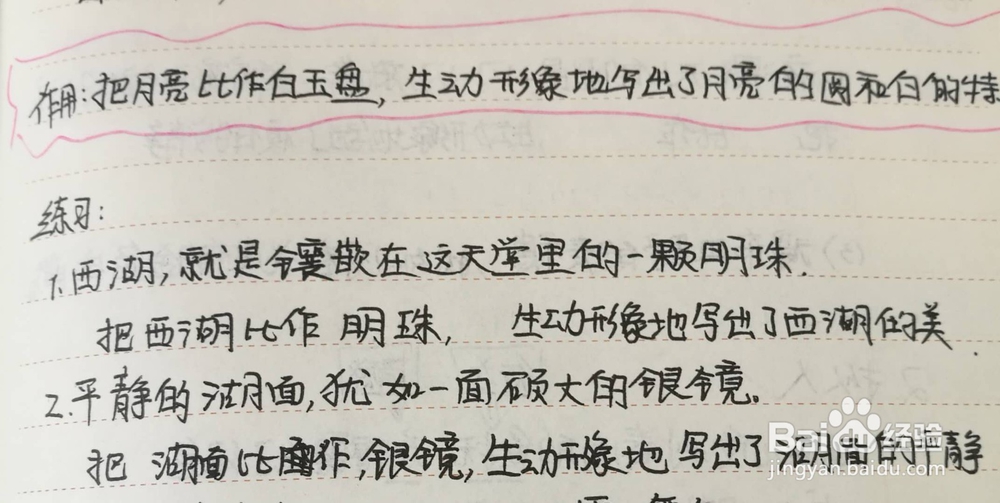 作用:把月亮比作白玉盘,生动形象地写出了月亮的圆和白的特
练习:
1.西湖,就是镶嵌在这天堂里的一颗明珠.
把西湖比作明珠, 生动形象地写出了西湖的美.
2.平静的湖面,犹如一面硕大的银镜。
把湖面比作银镜,生动形象地写出了湖面的平静
Baidu经验
jingyan.baidu.com